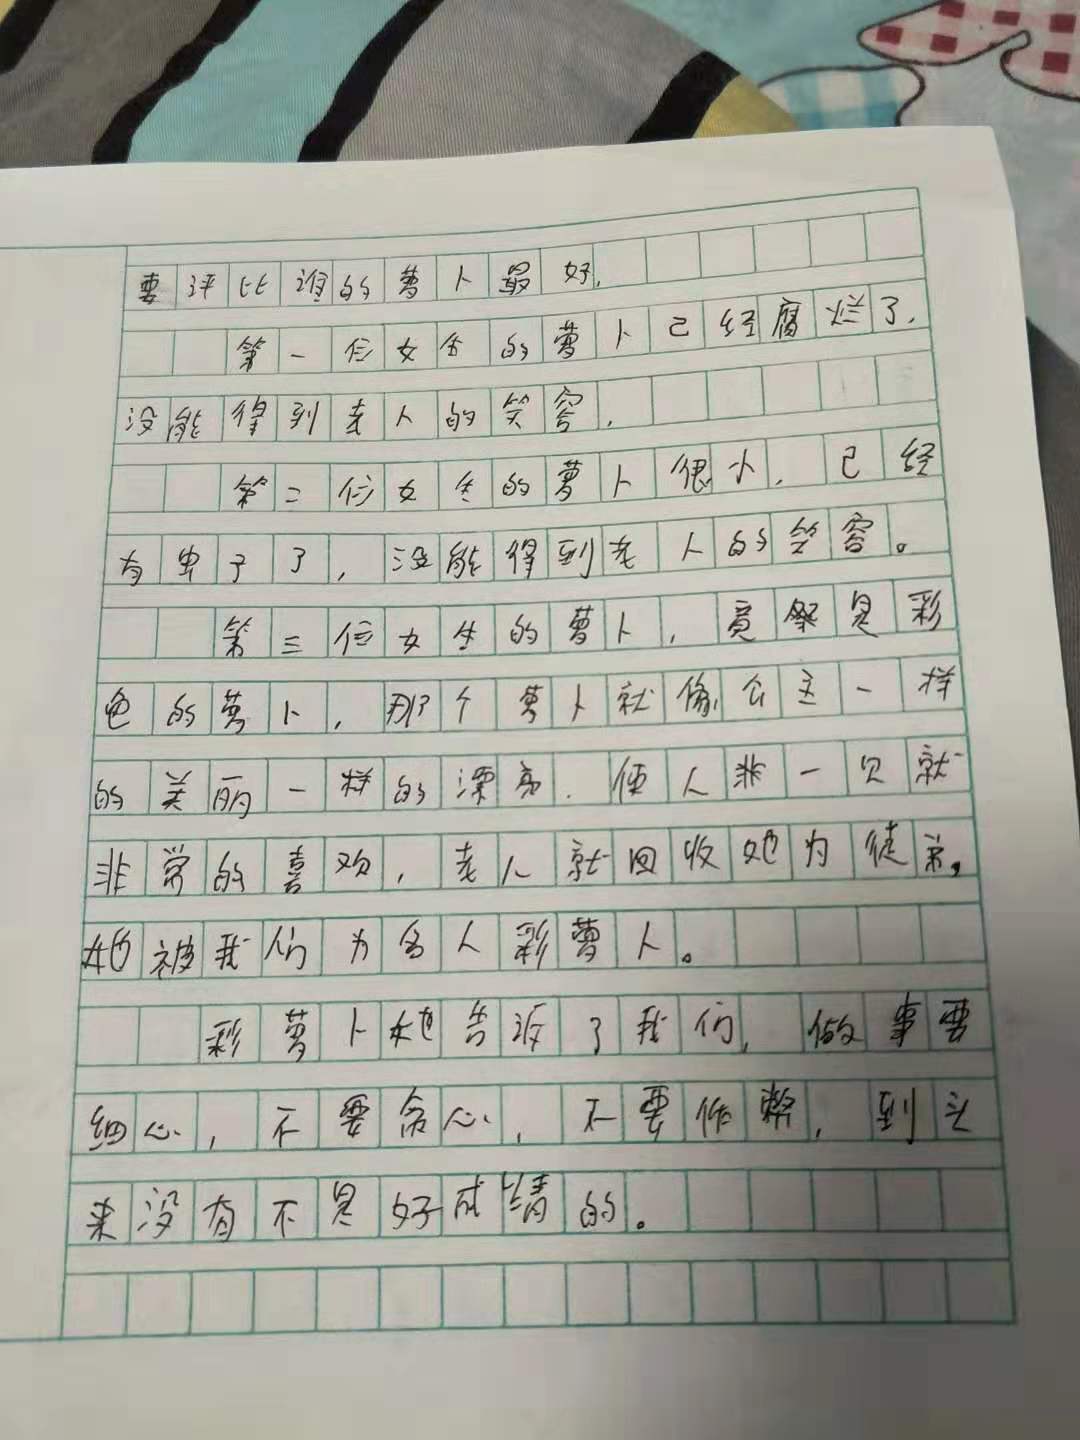 要评比谁的萝卜最好.
第一位女生的萝卜已经腐烂了.
没能得到老人的笑容.
第二位女生的萝卜很小.已经
有虫子了,没能得到老人的笑容。
第三位女生的萝卜,竟然是彩
色的萝卜,那个萝卜就像公主一样
的美丽一样的漂亮.使人非一见就
非常的喜欢,老人就回收她为徒弟。
她被我们为名人彩萝卜。
彩萝卜她告诉了我们,做事要
细心,不要贪心,不要作弊,到头
来没有不是好成绩的。